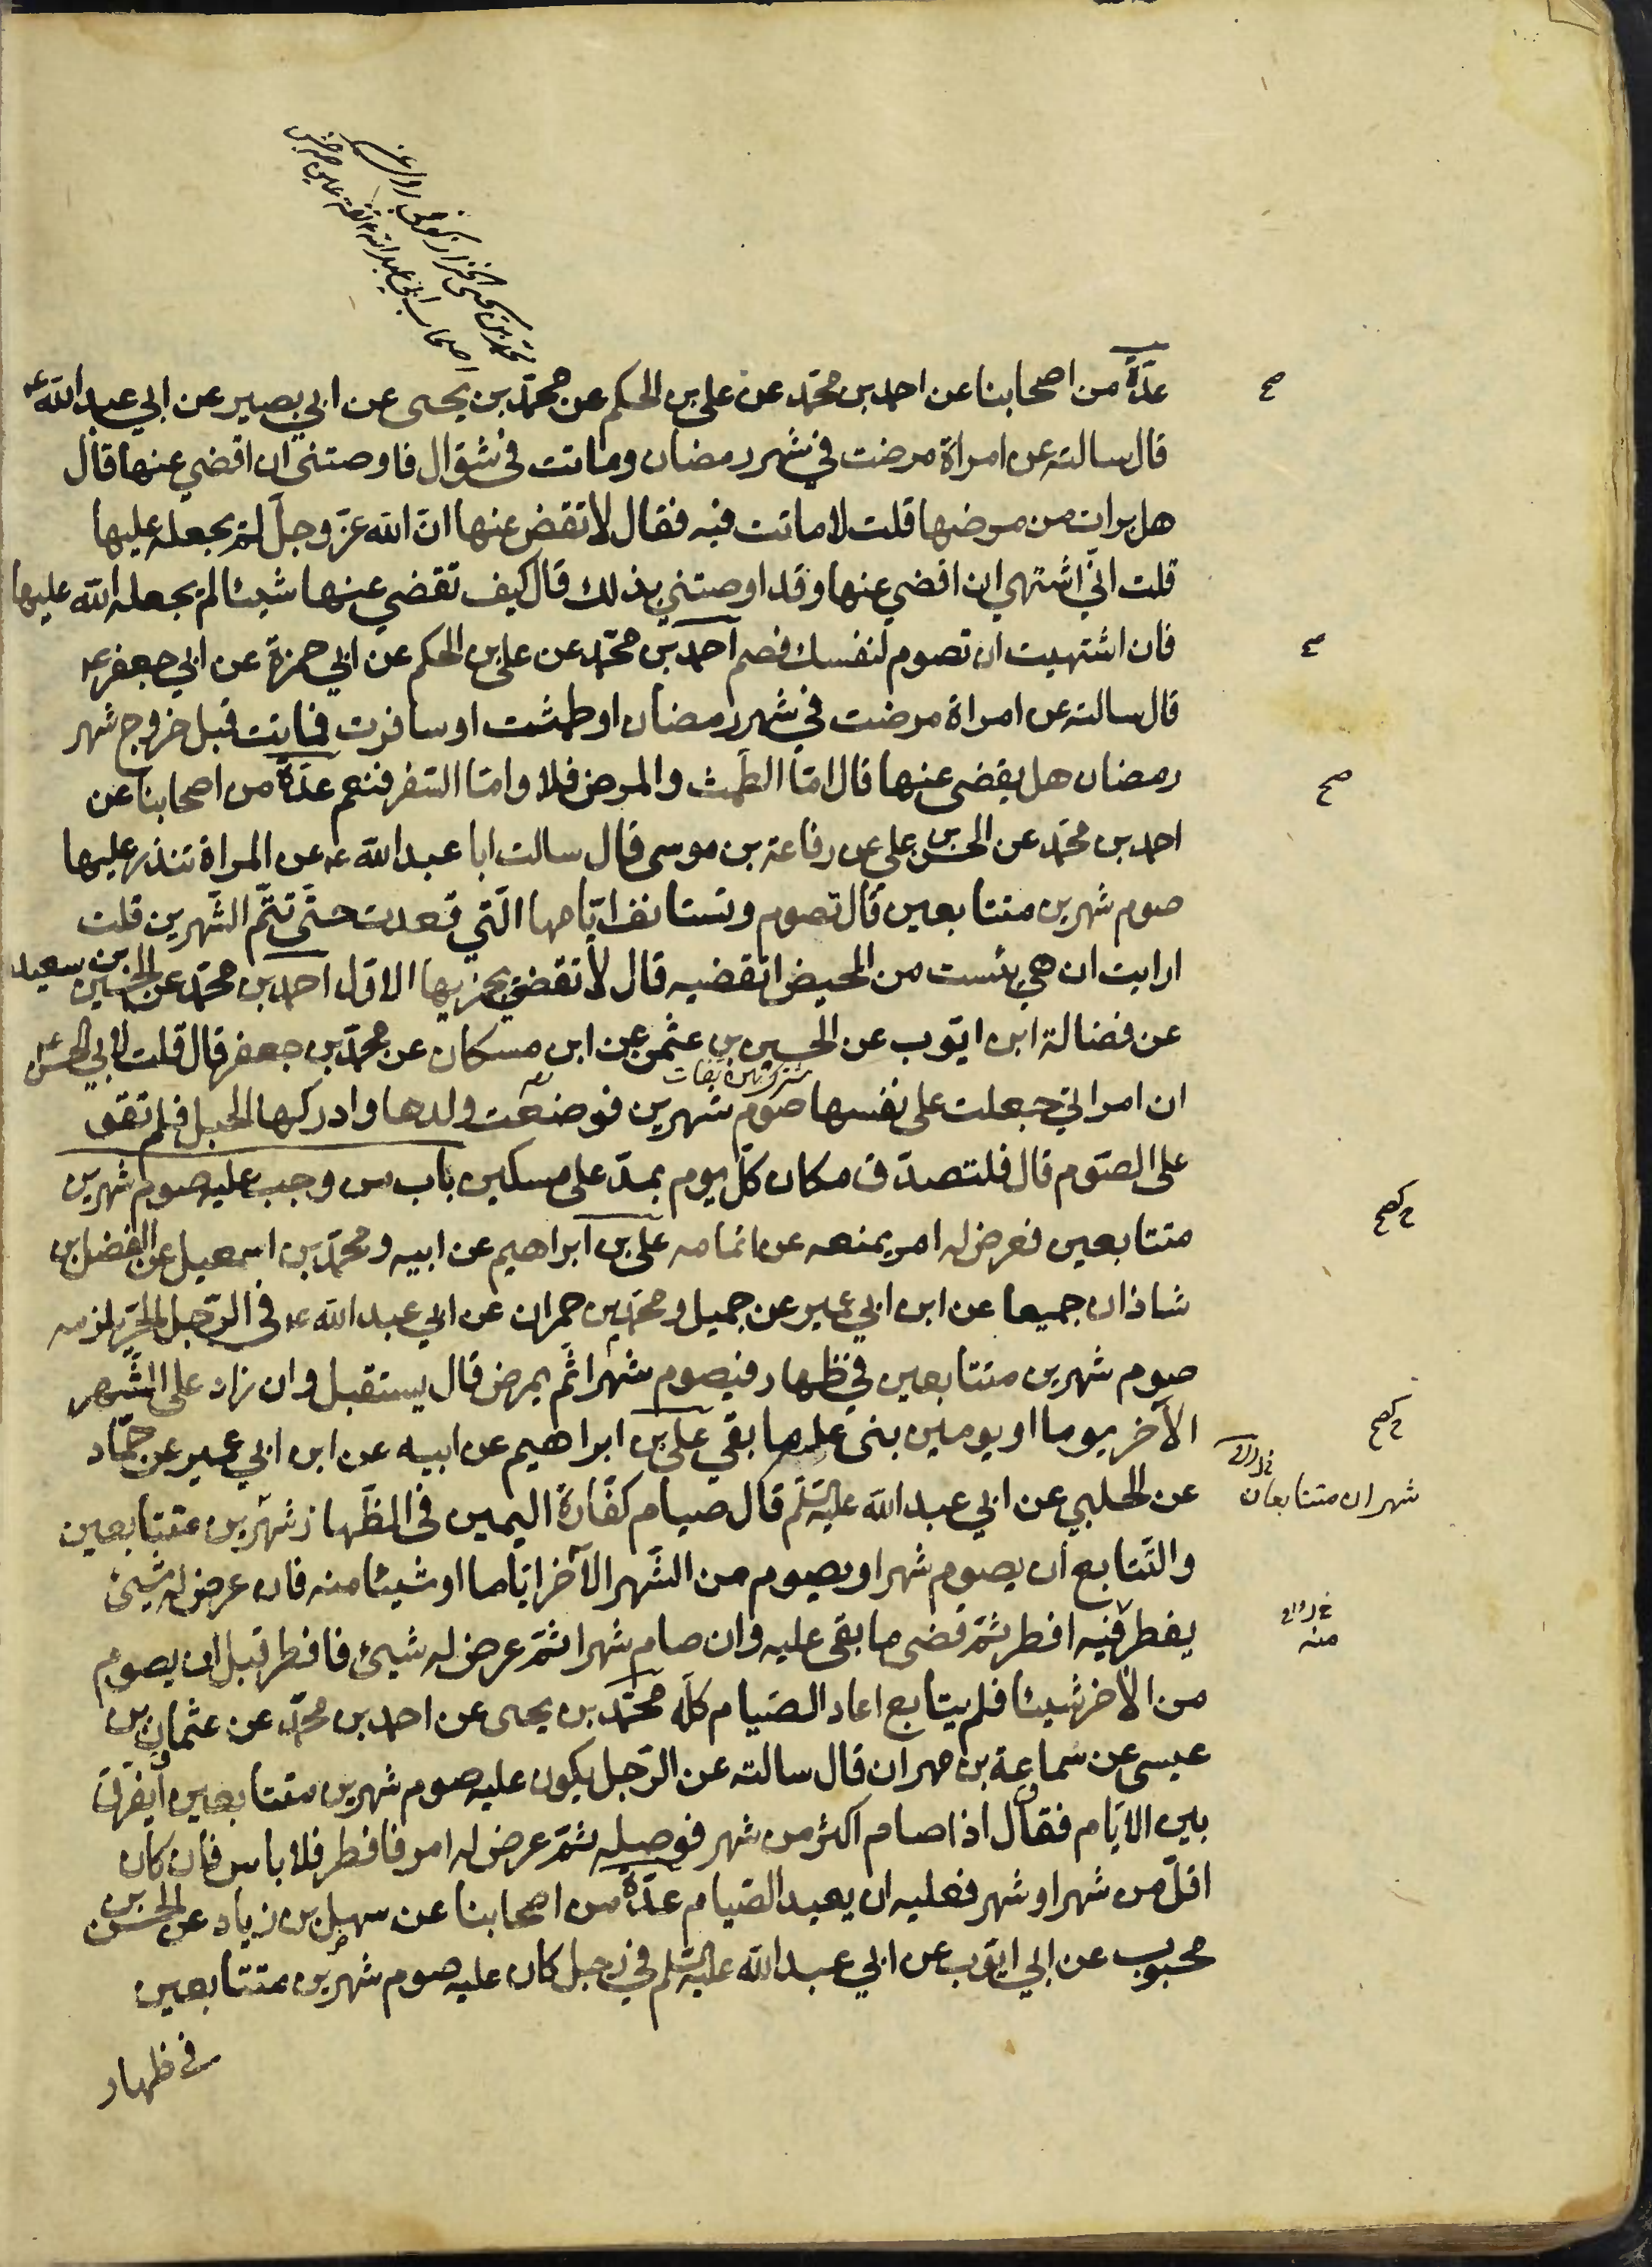 عدّة من اصحابنا عن احمد بن محمّد عن علي بن الحكم عن محمّد بن يحيى عن ابي بصير عن ابي عبد الله ع
قال سالته عن امراة مرضت في شهر رمضان وماتت في شوّال فاوصتني ان اقضي عنها قال
هل برات من مرضها قلت لا ماتت فيه فقال لا تقض عنها انّ الله عزّ وجلّ لم يجعله عليها
قلت انّي اشتهي ان اقضي عنها وقد اوصتني بذلك قال كيف تقضي عنها شيئا لم يجعله الله عليها
فان اشتهيت ان تصوم لنفسك فصم احمد بن محمّد عن علي بن الحكم عن ابي حمزة عن ابي جعفر ع
قال سالته عن امراة مرضت في شهر رمضان او طمثت او سافرت فماتت قبل خروج شهر
رمضان هل يقضى عنها قال امّا الطّمث والمرض فلا وامّا السّفر فنعم عدّة من اصحابنا عن
احمد بن محمّد عن الحسن بن علي عن رفاعة بن موسى قال سالت ابا عبد الله ع عن المراة تنذر عليها
صوم شهرين متتابعين قال تصوم وتستانف ايّامها الّتي قعدت حتّى تتمّ الشّهرين قلت
ارايت ان هي يئست من المحيض اتقضيه قال لا تقضي يجزيها الاوّل احمد بن محمّد عن الحسين بن سعيد
عن فضالة ابن ايّوب عن الحسين بن عثمن عن ابن مسكان عن محمّد بن جعفر قال قلت لابي الحسن ع
ان امراتي جعلت على نفسها صوم شهرين فوضعت ولدها وادركها الحبل فلم تقو
على الصّوم قال فلتصدّق مكان كلّ يوم بمدّ على مسكين باب من وجب عليه صوم شهرين
متتابعين فعرض له امر يمنعه عن اتمامه علي بن ابراهيم عن ابيه ومحمّد بن اسمعيل عن الفضل بن
شاذان جميعا عن ابن ابي عمير عن جميل ومحمّد بن حمران عن ابي عبد الله ع في الرّجل الحرّ يلزمه
صوم شهرين متتابعين في ظهار فيصوم شهرا ثم يمرض قال يستقبل وان زاد على الشّهر
الآخر يوما او يومين بنى على ما بقي علي بن ابراهيم عن ابيه عن ابن ابي عمير عن حمّاد
عن الحلبي عن ابي عبد الله عليه السّلم قال صيام كفّارة اليمين في الظّهار شهرين متتابعين
شهران متتابعان
والتّتابع ان يصوم شهرا ويصوم من الشّهر الآخر ايّاما او شيئا منه فان عرض له شيئ
يفطر فيه افطر ثمّ قضى ما بقى عليه وان صام شهرا ثمّ عرض له شيئ فافطر قبل ان يصوم
منه
من الآخر شيئا فلم يتابع اعاد الصّيام كلّه محمّد بن يحيى عن احمد بن محمّد عن عثمان بن
عيسى عن سماعة بن مهران قال سالته عن الرّجل يكون عليه صوم شهرين متتابعين ايفرّق
بين الايّام فقال اذا صام اكثر من شهر فوصله ثمّ عرض له امر فافطر فلا باس فان كان
اقلّ من شهر او شهر فعليه ان يعيد الصّيام عدّة من اصحابنا عن سهل بن زياد عن الحسن بن
محبوب عن ابي ايّوب عن ابي عبد الله عليه السّلم في رجل كان عليه صوم شهرين متتابعين
في ظهار